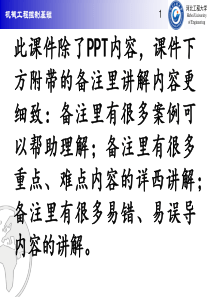 机械工程控制基础
1
河北工程大学
Hebei University
of Engineering
此课件除了PPT内容，课件下
方附带的备注里讲解内容更
细致：备注里有很多案例可
以帮助理解；备注里有很多
重点、难点内容的详西讲解；
备注里有很多易错、易误导
内容的讲解。